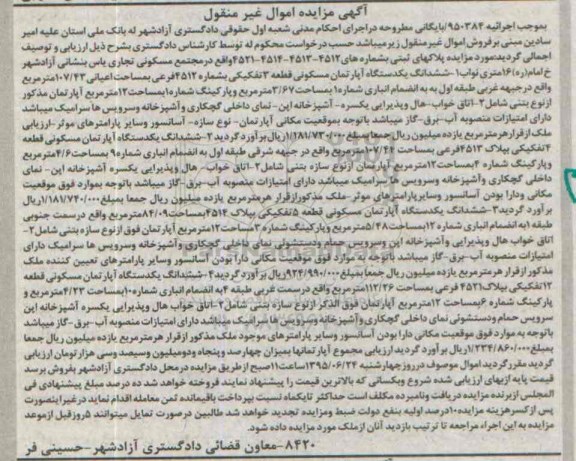 آگهی مزایده اموال غیر منقول
بموجب اجرائیه ۹۵۰۳۸۴/بایگانی مطروحه دراجرای احکام مدنی شعبه اول حقوقی دادگستری آزادشهر له بانک ملی استان علیه امیر
سادین مبنی برفروش اموال غیرمنقول زیرمیباشد حسب درخواست محکوم له توسط کارشناس دادگستری بشرح ذیل ارزیابی و توصیف
اجمالی گردیدمورد مزایده پلاکهای ثبتی بشماره های۴۵۱۲-۴۵۱۳-۴۵۱۴-۴۵۲۱واقع درمجتمع مسکونی تجاری یاس بنشانی آزادشهر
خ امام(ره)۱۶متری نواب۱-ششدانگ یکدستگاه آپارتمان مسکونی قطعه ۳تفکیکی بشماره ۴۵۱۲فرعی بمساحت اعیانی۱۰۷/۴۳مترمربع
واقع درجبهه غربی طبقه اول به به انضمام انباری شماره۱بمساحت۳/۶۷مترمربع وپارکینگ شماره۱بمساحت۱۲مترمربع آپارتمان مذکور
ازنوع بتنی شامل۲-اتاق خواب-هال وپذیرایی یکسره- آشپزخانه اپن- نمای داخلی گچکاری و آشپزخانه وسرویس ها سرامیک میباشد
دارای امتیازات منصوبه آب-برق-گاز میباشد باتوجه بموقعیت مکانی آپارتمان- نوع سازه- آسانسور وسایر پارامترهای موثر-ارزیابی
ملک ازقرارهرمترمربع یازده میلیون ریال جمعابمبلغ۱/۱۸۱/۷۳۰/۰۰۰ریال برآورد گردید ۲-ششدانگ یکدستگاه آپارتمان مسکونی قطعه
۴تفکیکی بپلاک ۴۵۱۳فرعی بمساحت ۱۰۷/۴۲مترمربع واقع در جبهه شرقی طبقه اول به انضمام انباری شماره۹ بمساحت۴/۶مترمربع
وپارکینگ شماره ۴بمساحت۱۲مترمربع آپارتمان ازنوع سازه بتنی شامل۲-اتاق خواب- هال وپذیرایی یکسره آشپزخانه اپن- نمای
داخلی گچکاری وآشپزخانه وسرویس ها سرامیک میباشد دارای امتیازات منصوبه آب-برق-گاز میباشد باتوجه بموارد فوق موقعیت
مکانی ودارا بودن آسانسور وسایرپارامترهای موثر-ملک مذکورازقرار هرمترمربع یازده میلیون ریال جمعا بمبلغ ۱/۱۸۱/۷۴۰/۰۰۰ریال
برآورد گردید۳-ششدانگ یکدستگاه آپارتمان مسکونی قطعه ۵تفکیکی بپلاک ۴۵۱۴بمساحت۸۴/۰۹مترمربع واقع درسمت جنوبی
طبقه ۱به انضمام انباری شماره ۱۲بمساحت۵/۴۸مترمربع وپارکینگ شماره ۳مساحت۱۲مترمربع آپارتمان فوق ازنوع سازه بتنی شامل۲-
اتاق خواب هال وپذیرایی وآشپزخانه اپن وسرویس حمام ودستشوئی نمای داخلی گچکاری وآشپزخانه وسرویس ها سرامیک دارای
امتیازات منصوبه آب-برق-گاز میباشد باتوجه به موارد فوق موقعیت مکانی دارا بودن آسانسور وسایر پارامترهای تعیین کننده ملک
مذکور ازقرار هرمترمربع یازده میلیون ریال جمعا بمبلغ۹۲۴/۹۹۰/۰۰۰ریال برآورد گردید ۴-ششدانگ یکدستگاه آپارتمان مسکونی قطعه
۱۲تفکیکی بپلاک۴۵۲۱ فرعی بمساحت ۱۱۲/۲۶مترمربع واقع درسمت غربی طبقه ۴به انضمام انباری شماره۱۰بمساحت ۴/۲۲مترمربع و
پارکینگ شماره ۶بمساحت ۱۲مترمربع آپارتمان فوق الذکر ازنوع سازه بتنی شامل۲-اتاق خواب هال وپذیرایی یکسره آشپزخانه اپن
سرویس حمام ودستشوئی نمای داخلی گچکاری وآشپزخانه وسرویس ها سرامیک میباشد دارای امتیازات منصوبه آب-برق-گاز میباشد
باتوجه به موارد فوق موقعیت مکانی دارا بودن آسانسور وسایر پارامترهای موجود ملک مذکور ازقرار هرمترمربع یازده میلیون ریال جمعا
بمبلغ۱/۲۳۴/۸۶۰/۰۰۰ریال برآورد گردید ارزیابی مجموع آپارتمانها بمیزان چهارصد وپنجاه ودومیلیون وسیصد وسی هزارتومان ارزیابی
گردید مقررگردید اموال موصوف درروزچهارشنبه ۱۳۹۵/۰۶/۲۴ساعت۱۱صبح ازطریق مزایده درمحل دادگستری آزادشهر بفروش برسد
قیمت پایه ازبهای ارزیابی شده شروع وبکسانی که بالاترین قیمت را پیشنهاد نمایند فروخته خواهد شد ده درصد مبلغ پیشنهادی فی
المجلس ازبرنده مزایده دریافت ونامبرده مکلف است حداکثر تایکماه نسبت بپرداخت باقیمانده ثمن معامله اقدام نماید درغیراینصورت
پس ازکسرهزینه مزایده۱۰درصد اولیه بنفع دولت ضبط ومزایده تجدید خواهد شد طالبین درصورت تمایل میتوانند ۵روزقبل ازموعد
مزایده به این اجراء مراجعه تا ترتیب بازدید آنان ازملک مورد مزایده داده شود.
۸۴۲۰-معاون قضائی دادگستری آزادشهر-حسینی فر